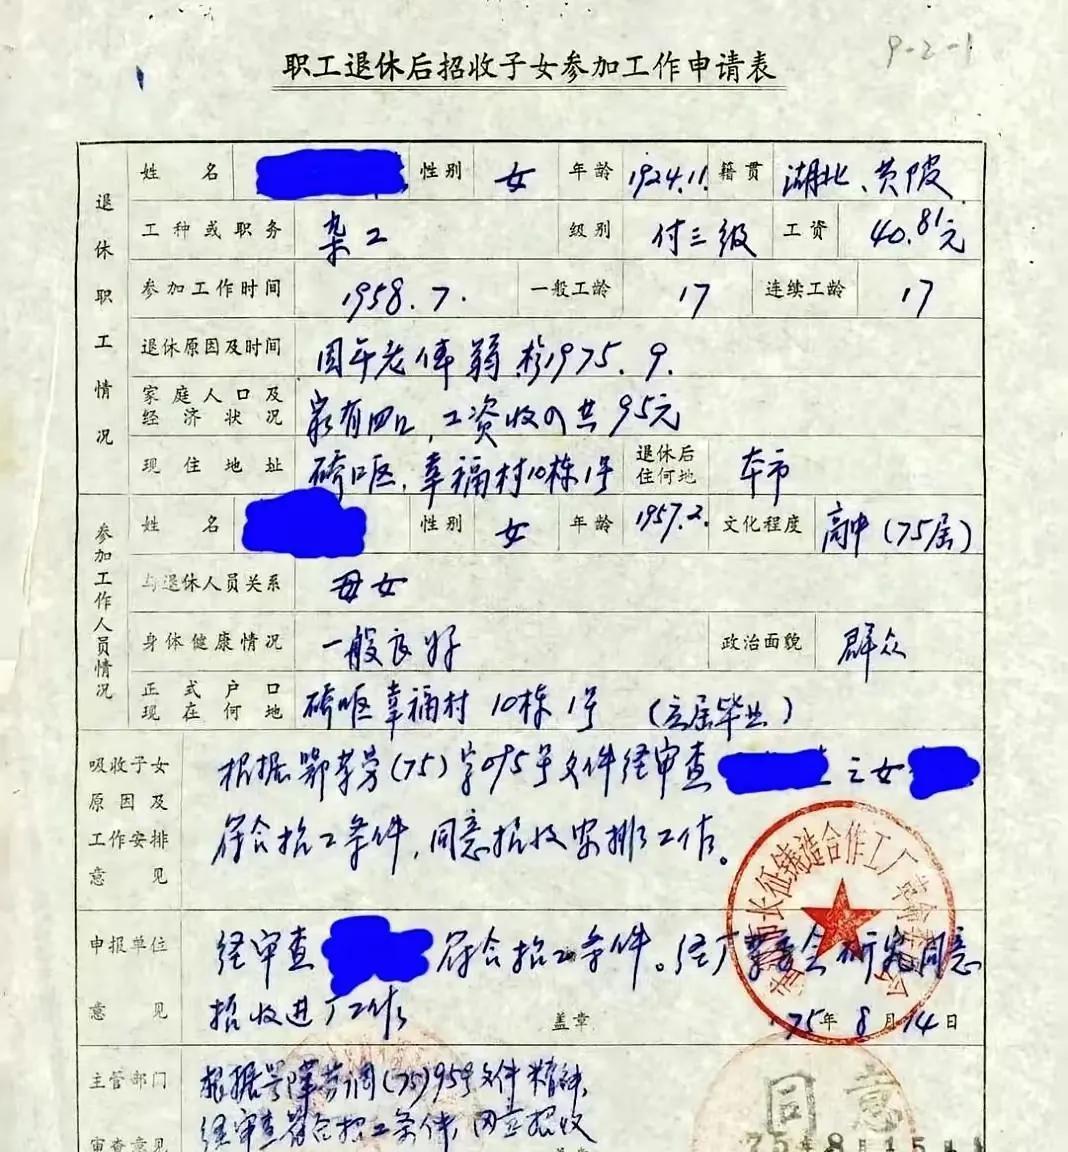 9-2-1
职工退休后招收子女参加工作申请表
退休职工情况
姓名 性别 女 年龄 1924.11. 籍贯 湖北、黄陂
工种或职务 杂工 级别 付三级 工资 40.81元
参加工作时间 1958.7. 一般工龄 17 连续工龄 17
退休原因及时间 因年老体弱 于1975.9.
家庭人口及经济状况 家有四口,工资收入共95元
现住地址 硚口区,幸福村10栋1号 退休后住何地 本市
参加工作人员情况
姓名 性别 女 年龄 1957.2. 文化程度 高中(75届)
与退休人员关系 母女
身体健康情况 一般良好 政治面貌 群众
正式户口现在何地 硚口区幸福村 10栋1号 (应届毕业)
吸收子女原因及工作安排意见
根据鄂革劳(75)字095号文件经审查 之女
符合招工条件,同意招收安排工作。
长征铸造合作工厂革命委员会
申报单位意见
经审查 符合招工条件。经厂革委会研究同意
招收进厂工作 盖章 75年8月14日
主管部门审查意见
根据 劳调(75)95号文件精神,
经审查符合招工条件,同意招收
同意
75 8 15